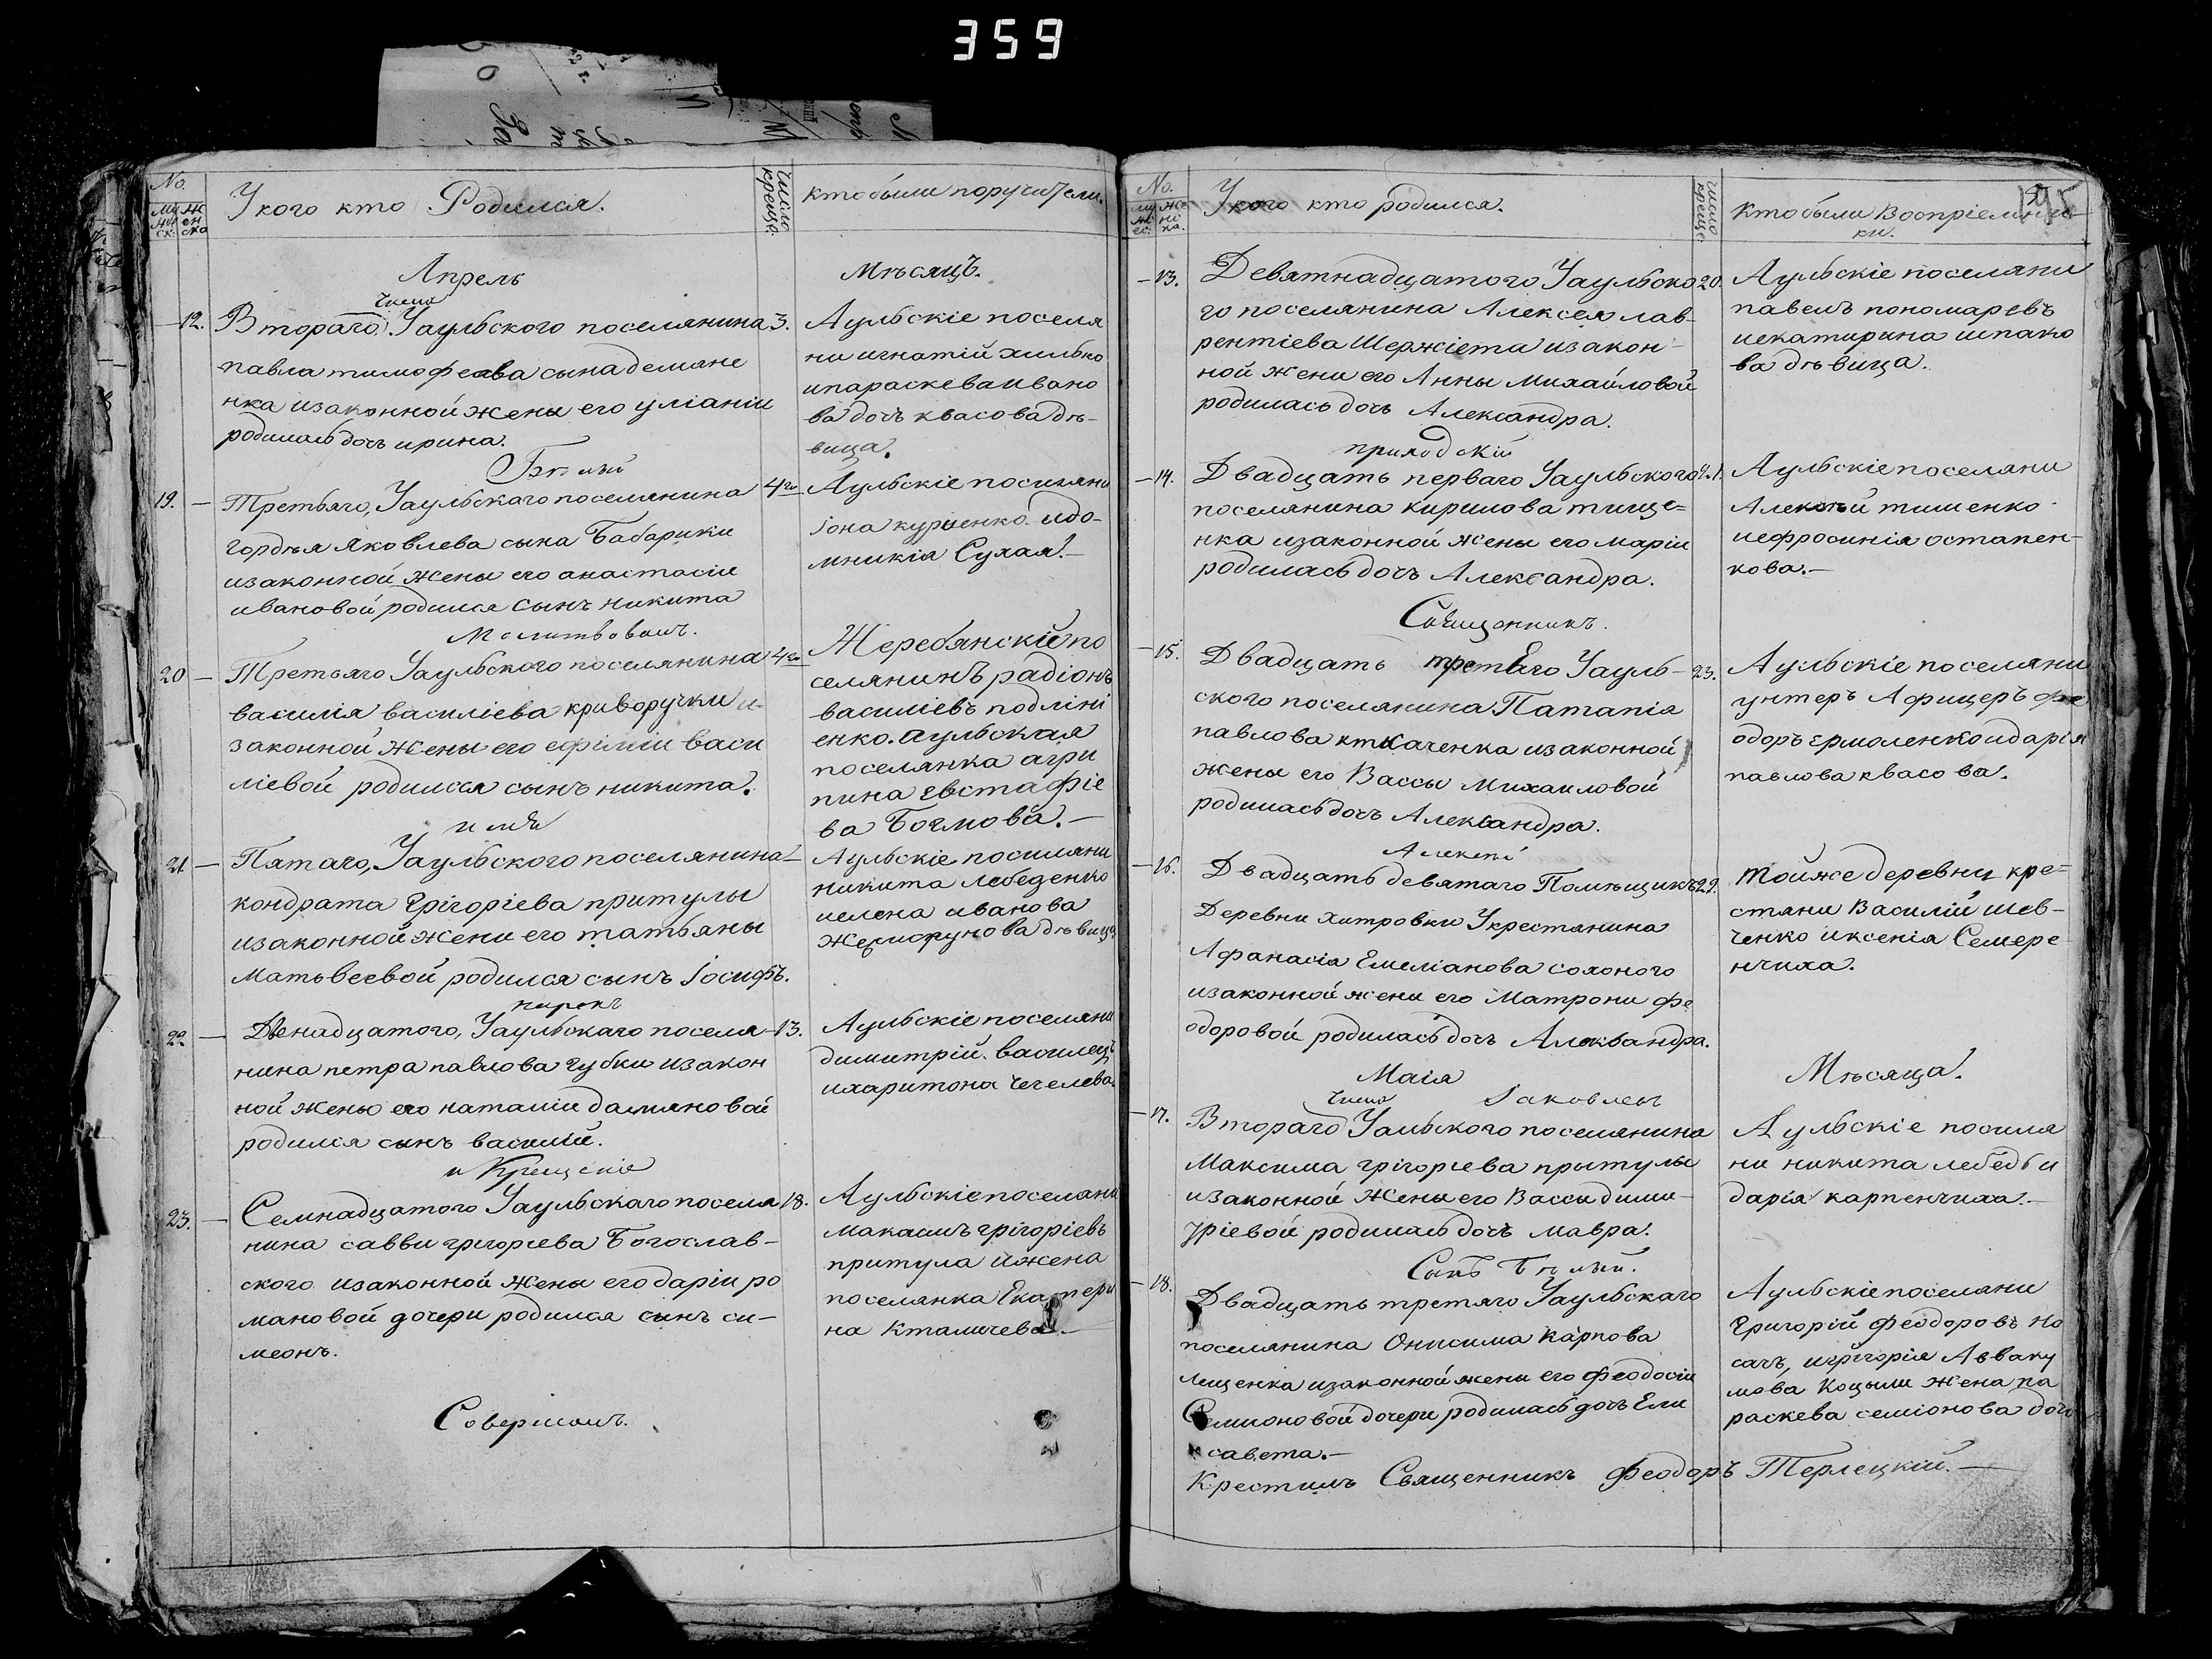 359
No. Му жес к: Же нс ка
У кого кто Родился.
число крещ:
кто были поручители.
Апрель
Мѣсяцъ.
числа
12. Втораго Уаульского поселянина 3.
павла тимофеева сына демяне
нка изаконной жены его уліаніи
родилась дочь ирина.
Аульскіе поселя
ни игнатій хилько
ипараскева ивано
ва дочь квасова дѣ-
вица.
Бѣлый
19. — Третьяго, Уаульскаго поселянина 4го
гордѣя Яковлева сына Бабарики
изаконной жены его анастасіи
ивановой родился сынъ никита
Аульскіе поселяни
іона куриенко идо-
мникія Сухая.—
Молитвовалъ.
20 — Третьяго Уаульского поселянина 4го
василія василіева криворучки и-
законной жены его ефіміи васи
ліевой родился сынъ никита.
Жеребянскій по
селянинъ радіонъ
василіевъ подліні
енко. аульская
поселянка агри
пина Евстафіе
ва Богмова.—
имя
21. — Пятаго, Уаульского поселянина —
кондрата Григоріева притулы
изаконной жени его татьяны
Матьвеевой родился сынъ Іосифъ.
Аульскіе посиляни
никита лебеденко
иелена иванова
дѣвица
нарокъ
22 — Двенадцатого, Уаульскаго поселя- 13.
нина петра павлова губки изакон
ной жены его наталіи даміяновой
родился сынъ василій.
Аульскіе поселяни
димитрій василецъ
ихаритона чегелева.
и Крещеніе
23. — Семнадцатого Уаульскаго поселя 18.
нина савви григоріева Богослав-
ского изаконной жены его даріи ро
мановой дочери родился сынъ си-
меонъ.
Аульскіе поселяни
максимъ григоріевъ
притула ижена
поселянка Екатери
на Кталичева.—
Совершалъ.
No. му жс ес: же нс ка.
У кого кто родился.
число крещ:
Кто были Воспріемни-
ки.
195
— 13. Девятнадцатого Уаульско 20.
го поселянина Алексея лав-
рентіева Шержіета изакон-
ной жени его Анны Михайловой
родилась дочь Александра.
Аульскіе поселяни
павелъ пономаревъ
иекатирина шпако
ва дѣвица.
приходскій
— 14. Двадцать перваго Уаульского 21.
поселянина кирилова тище-
нка изаконной жены его маріи
родилась дочь Александра.
Аульскіе поселяни
Алексѣй тищенко
иефросинія остапен-
кова.—
Священникъ.
— 15. Двадцать третяго Уауль- 23.
ского поселянина Патапія
павлова кткаченка изаконной
жены его Вассы Михаиловой
родилась дочь Александра.
Аульскіе поселяни
унтеръ Афицеръ фе
одоръ Ермоленко идарія
павлова квасова.
Алексѣй
— 16. Двадцать девятаго Помѣщика 29.
Деревни хитровки Укрестянина
Афанасія Емеліанова солоного
изаконной жени его Матрони фе
одоровой родилась дочь Александра.
тойже деревни кре-
стяни Василій шев-
ченко иксенія Семере
нчиха.
Маія
Мѣсяца.
числа Іаковлевъ
— 17. Втораго Уаульского поселянина
Максима григоріева притулы
изаконной жены его Вассы дими-
тріевой родилась дочь мавра.
Аульскіе посиля
ни никита лебедь и
дарія карпенчиха.—
Сынъ Бѣлый.
— 18. Двадцать третяго Уаульскаго
поселянина Онисима карпова
лещенка изаконной жени его феодосіи
Семионовой дочери родилась дочь Ели
савета.—
Аульскіе поселяни
Григорій феодоровъ но
сачъ, игрігорія Авваку
мова Коцыли жена па
раскева семіонова дочь
Крестилъ Священникъ феодоръ Терлецкій.—